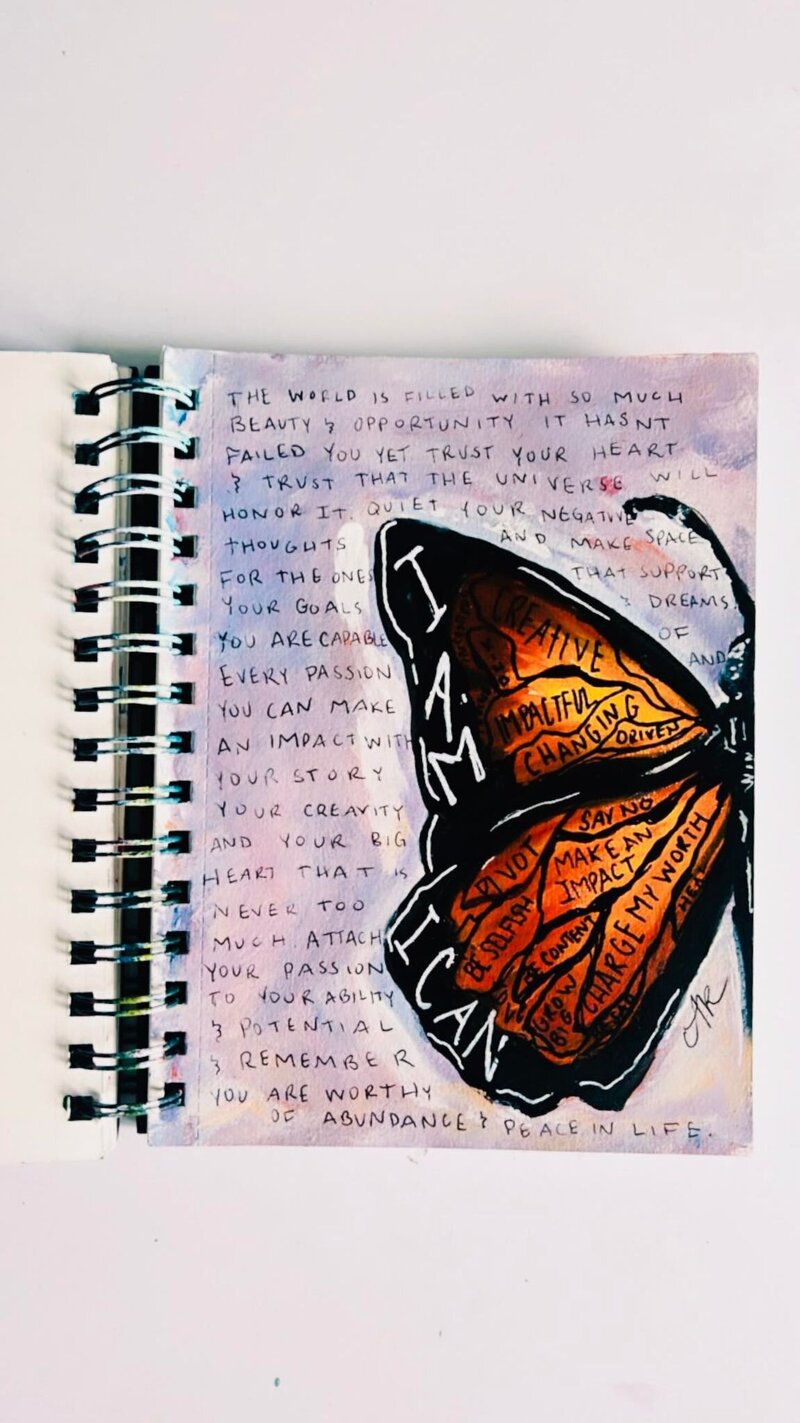 THE WORLD IS FILLED WITH SO MUCH
BEAUTY & OPPORTUNITY IT HASNT
FAILED YOU YET TRUST YOUR HEART
& TRUST THAT THE UNIVERSE WILL
HONOR IT. QUIET YOUR NEGATIVE
THOUGHTS AND MAKE SPACE
FOR THE ONES THAT SUPPORT
YOUR GOALS & DREAMS.
YOU ARE CAPABLE OF
EVERY PASSION AND
YOU CAN MAKE
AN IMPACT WITH
YOUR STORY
YOUR CREAVITY
AND YOUR BIG
HEART THAT IS
NEVER TOO
MUCH. ATTACH
YOUR PASSION
TO YOUR ABILITY
& POTENTIAL
& REMEMBER
YOU ARE WORTHY
OF ABUNDANCE & PEACE IN LIFE.
I AM
CREATIVE
IMPACTFUL
CHANGING
DRIVEN
I CAN
SAY NO
PIVOT
MAKE AN
IMPACT
BE SELFISH
BE CONTENT
CHARGE MY WORTH
GROW
BIG